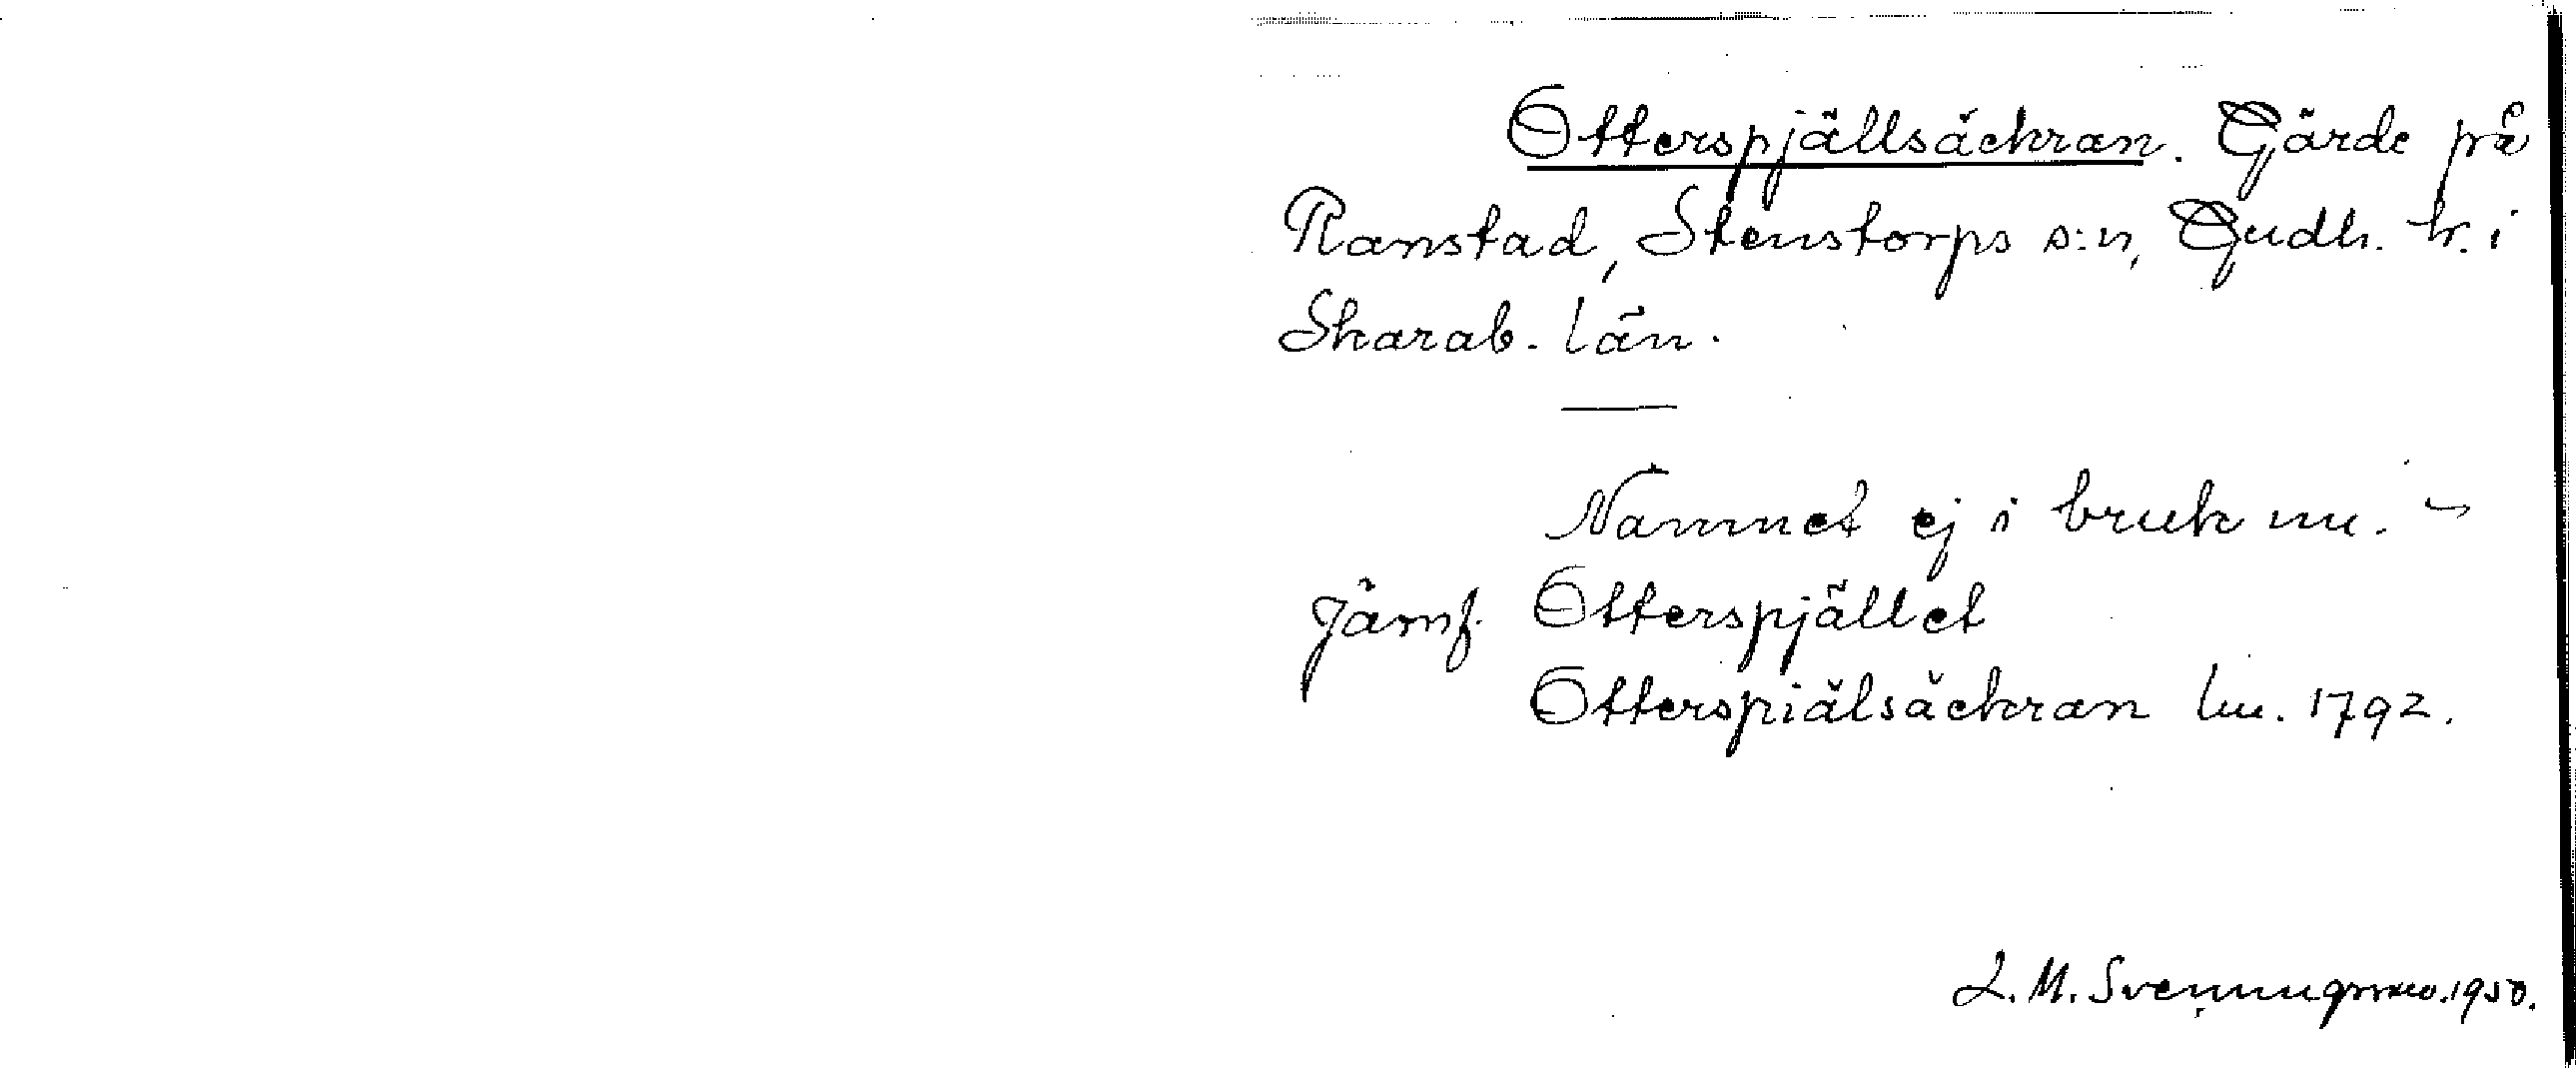 Otterspjällsäckran. Gärde på
Ranstad, Stenstorps s:n, Gudh. hr. i
Skarab. län.
Namnet ej i bruk nu. –
Jämf. Otterspjället
Otterspiälsäckran lm. 1792.
L. M. Svenungsson. 1950.